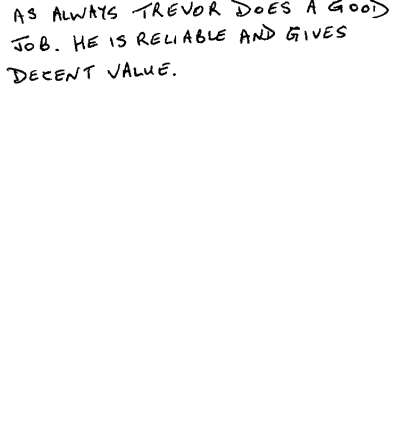 AS ALWAYS TREVOR DOES A GOOD
JOB. HE IS RELIABLE AND GIVES
DECENT VALUE.